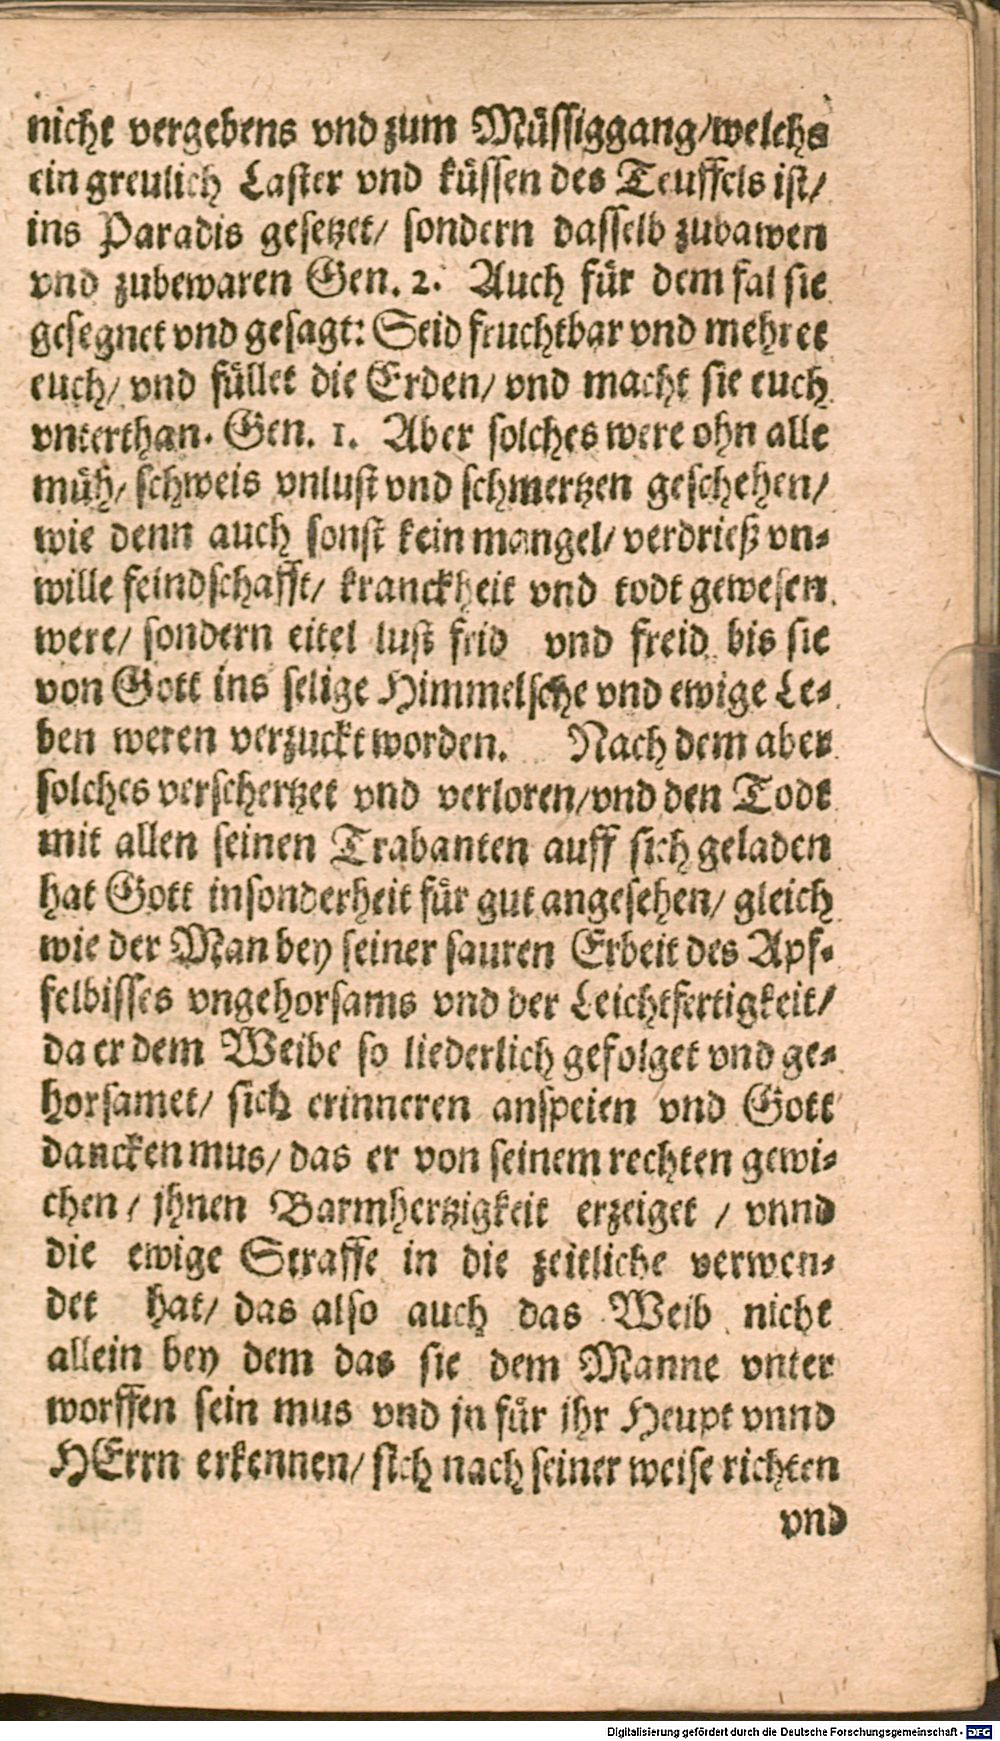 nicht vergebens vnd zum Müssiggang/welchs
ein greulich Laster vnd küssen des Teuffels ist/
ins Paradis gesetzet/ sondern dasselb zubawen
vnd zubewaren Gen. 2. Auch für dem fal sie
gesegnet vnd gesagt: Seid fruchtbar vnd mehret
euch/ vnd füllet die Erden/ vnd macht sie euch
vnterthan. Gen. 1. Aber solches were ohn alle
müh/ schweis vnlust vnd schmertzen geschehen/
wie denn auch sonst kein mangel/ verdrieß vn-
wille feindschafft/ kranckheit vnd todt gewesen
were/ sondern eitel lust frid vnd freid bis sie
von Gott ins selige Himmelsche vnd ewige Le-
ben weren verzuckt worden. Nach dem aber
solches verschertzet vnd verloren/vnd den Todt
mit allen seinen Trabanten auff sich geladen
hat Gott insonderheit für gut angesehen/ gleich
wie der Man bey seiner sauren Erbeit des Apf-
felbisses vngehorsams vnd der Leichtfertigkeit/
da er dem Weibe so liederlich gefolget vnd ge-
horsamet/ sich erinneren anspeien vnd Gott
dancken mus/ das er von seinem rechten gewi-
chen / jhnen Barmhertzigkeit erzeiget / vnnd
die ewige Straffe in die zeitliche verwen-
det hat/ das also auch das Weib nicht
allein bey dem das sie dem Manne vnter
worffen sein mus vnd jn für ihr Heupt vnnd
HErrn erkennen/ sich nach seiner weise richten
vnd
Digitalisierung gefördert durch die Deutsche Forschungsgemeinschaft - DFG